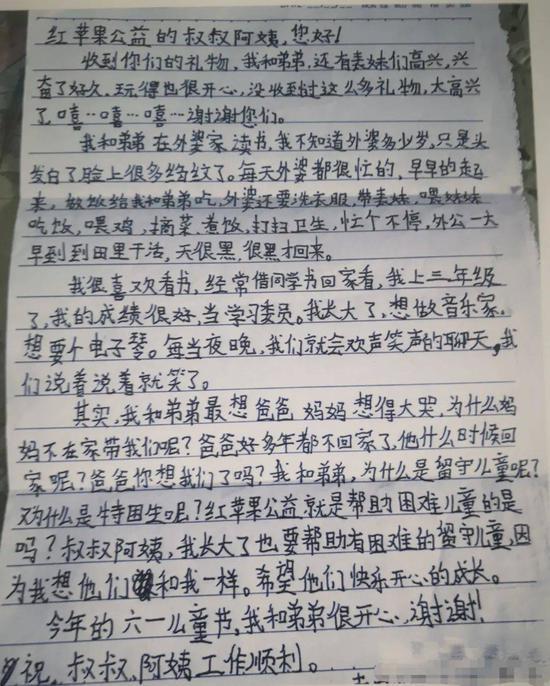 红苹果公益的叔叔阿姨,您好!
收到你们的礼物,我和弟弟,还有表妹们高兴,兴
奋了好久,玩得也很开心,没收到过这么多礼物,太高兴
了,嘻…嘻…嘻…谢谢您们。
我和弟弟在外婆家读书,我不知道外婆多少岁,只是头
发白了脸上很多纹了。每天外婆都很忙的,早早的起
来,做饭给我和弟弟吃,外婆还要洗衣服,带表妹,喂妹妹
吃饭,喂鸡,摘菜,煮饭,打扫卫生,忙个不停,外公一大
早到到田里干活,天很黑,很黑才回来。
我很喜欢看书,经常借同学书回家看,我上三年级
了,我的成绩很好,当学习委员。我长大了,想做音乐家。
想要个电子琴。每当夜晚,我们就会欢声笑声的聊天,我
们说着说着就笑了。
其实,我和弟弟最想爸爸妈妈想得大哭,为什么妈
妈不在家带我们呢?爸爸好多年都不回家了,他什么时候回
家呢?爸爸你想我们了吗?我和弟弟,为什么是留守儿童呢?
为什么是特困生呢?红苹果公益就是帮助困难儿童的是
吗?叔叔阿姨,我长大了也要帮助有困难的留守儿童,因
为我想他们和我一样。希望他们快乐开心的成长。
今年的六一儿童节,我和弟弟很开心,谢谢!
祝,叔叔、阿姨工作顺利。